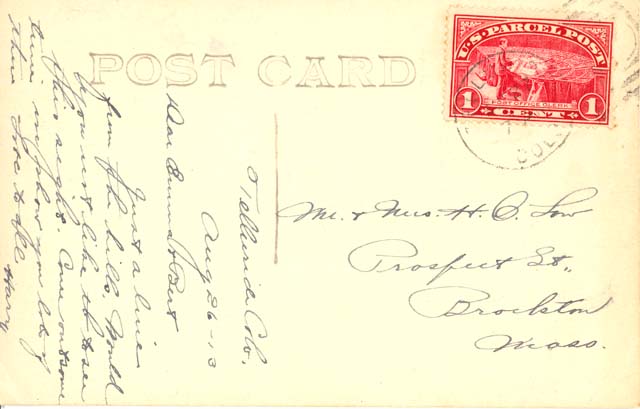 POST CARD
U.S. PARCEL POST
1
POST OFFICE CLERK
1
CENT
COLO
Telluride Colo,
Aug 26-13
Dear Emma & Bert
Just a line
from the hills. Would
you not like to see
this sight. Come out some
time and show you lots of
them Love to all
Harry
Mr. & Mrs. H. C. Low
Prospect St.,
Brockton
Mass.